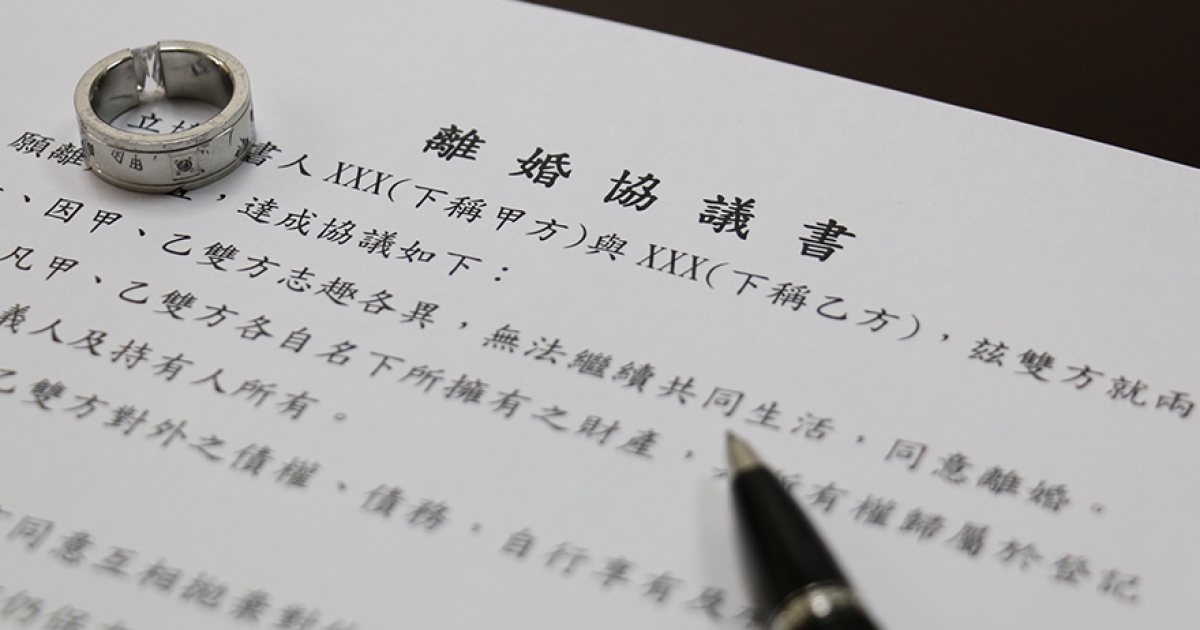 離婚協議書
立 書人XXX(下稱甲方)與XXX(下稱乙方)，茲雙方就兩
願離 ，達成協議如下：
、因甲、乙雙方志趣各異，無法繼續共同生活，同意離婚。
凡甲、乙雙方各自名下所擁有之財產， 所有權歸屬於登記
義人及持有人所有。
乙雙方對外之債權、債務，自行享有及
同意互相拋棄對
仍係